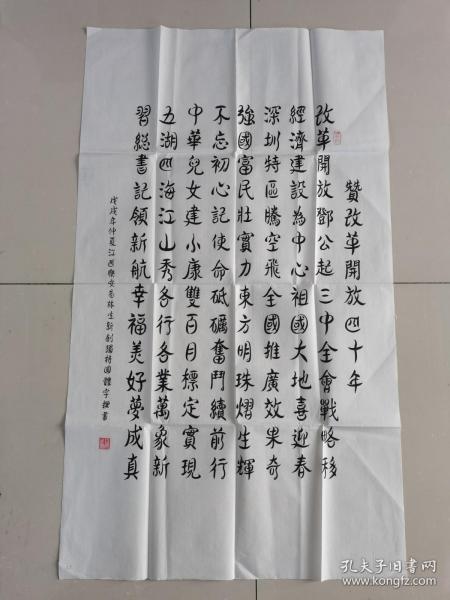 贊改革開放四十年
改革開放鄧公起三中全會戰略移
經濟建設為中心祖國大地喜迎春
深圳特區騰空飛全國推廣效果奇
強國富民壯實力東方明珠熠生輝
不忘初心記使命砥礪奮鬥續前行
中華兒女建小康雙百目標定實現
五湖四海江山秀各行各業萬象新
習總書記領新航幸福美好夢成真
戊戌年仲夏江西樂安 林生新創獨特圓體字 書
孔夫子旧书网
www.kongfz.com